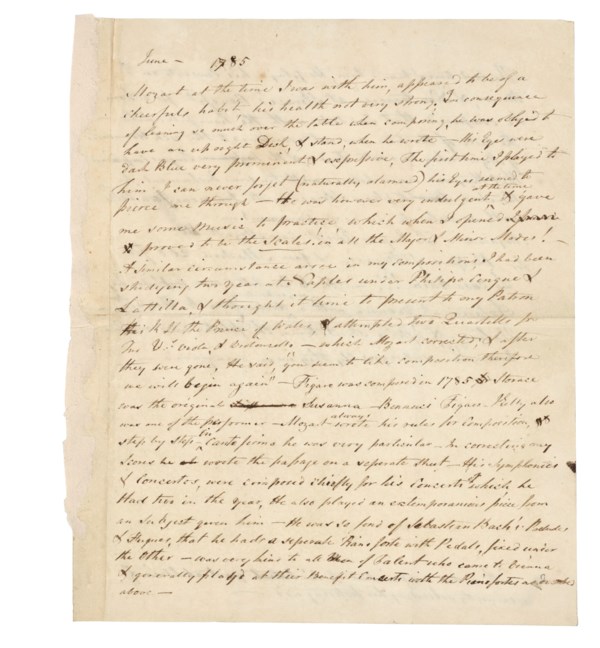 June – 1785
Mozart at the time I was with him, appeared to be of a
cheerful habit his health not very strong, In consequence
of leaning so much over the table when composing, he was obliged to
have an upright Desk, & stand, when he wrote – His Eyes were
dark Blue very prominent & expressive, The first time I played to
him, I can never forget (naturally alarmed) his Eyes seemed to
pierce me through – He was however very indulgent at the time & gave
me some Music to practice, which when I opened
proved to be the Scales! in all the Major & Minor Modes! –
A similar circumstance arose in my compositions I had been
studying two year at Naples under Philipo Cinque &
Lattilla, & thought it time to present to my Patron
H the Prince of Wales, & attempted two Quartetts for
Two Vns Viola, & Violoncello – which Mozart corrected, & after
they were gone, He said, "you seem to like composition therefore
we will begin again" – Figaro was composed in 1785 Storace
was the original Susanna – Benucci Figaro – Kelly also
was one of the performer – Mozart always wrote his rules for Composition,
step by step – in Canto firmo he was very particular – In correcting my
Scores he wrote the passage on a separate sheet – His Symphonies
& Concertos, were composed chiefly for his Concerts which he
Had two in the year, He also played an extemporaneous piece from
an Subject given him – He was so fond of Sebastian Bach's Preludes
& Fugues, that he had a seperate Piano forte with Pedals, fixed under
the Other – was very kind to all Men of Talent who came to Vienna
& generally played at their Benefit Concerts with the Piano fortes as described
above –